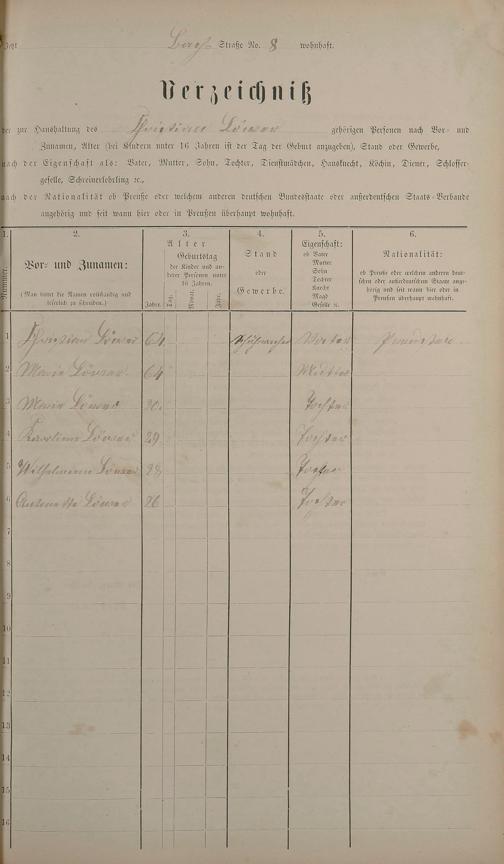 Jetzt Berg Straße No. 8 wohnhaft.
Verzeichniß
der zur Haushaltung des Christian Löwer gehörigen Personen nach Vor- und
Zunamen, Alter (bei Kindern unter 16 Jahren ist der Tag der Geburt anzugeben), Stand oder Gewerbe,
nach der Eigenschaft als: Vater, Mutter, Sohn, Tochter, Dienstmädchen, Hausknecht, Köchin, Diener, Schlosser-
geselle, Schreinerlehrling ꝛc.,
nach der Nationalität ob Preuße oder welchem anderen deutschen Bundesstaate oder außerdeutschen Staats-Verbande
angehörig und seit wann hier oder in Preußen überhaupt wohnhaft.
1. 2. 3. 4. 5. 6.
Nummer.
Vor- und Zunamen:
(Man bittet die Namen vollständig und
leserlich zu schreiben.)
Alter
Geburtstag
der Kinder und an-
derer Personen unter
16 Jahren.
Jahre. Tag. Monat. Jahr.
Stand
oder
Gewerbe.
Eigenschaft:
ob Vater
Mutter
Sohn
Tochter
Knecht
Magd
Geselle ꝛc.
Nationalität:
ob Preuße oder welchem anderen deut-
schen oder außerdeutschen Staate ange-
hörig und seit wann hier oder in
Preußen überhaupt wohnhaft.
1 Christian Löwer 64 Schuhmacher Vater
2 Marie Löwer 64 Mutter
3 Marie Löwer Tochter
4 Karoline Löwer 29 Tochter
5 Wilhelmine Löwer 28 Tochter
6 Antonette Löwer 26 Tochter
7
8
9
10
11
12
13
14
15
16